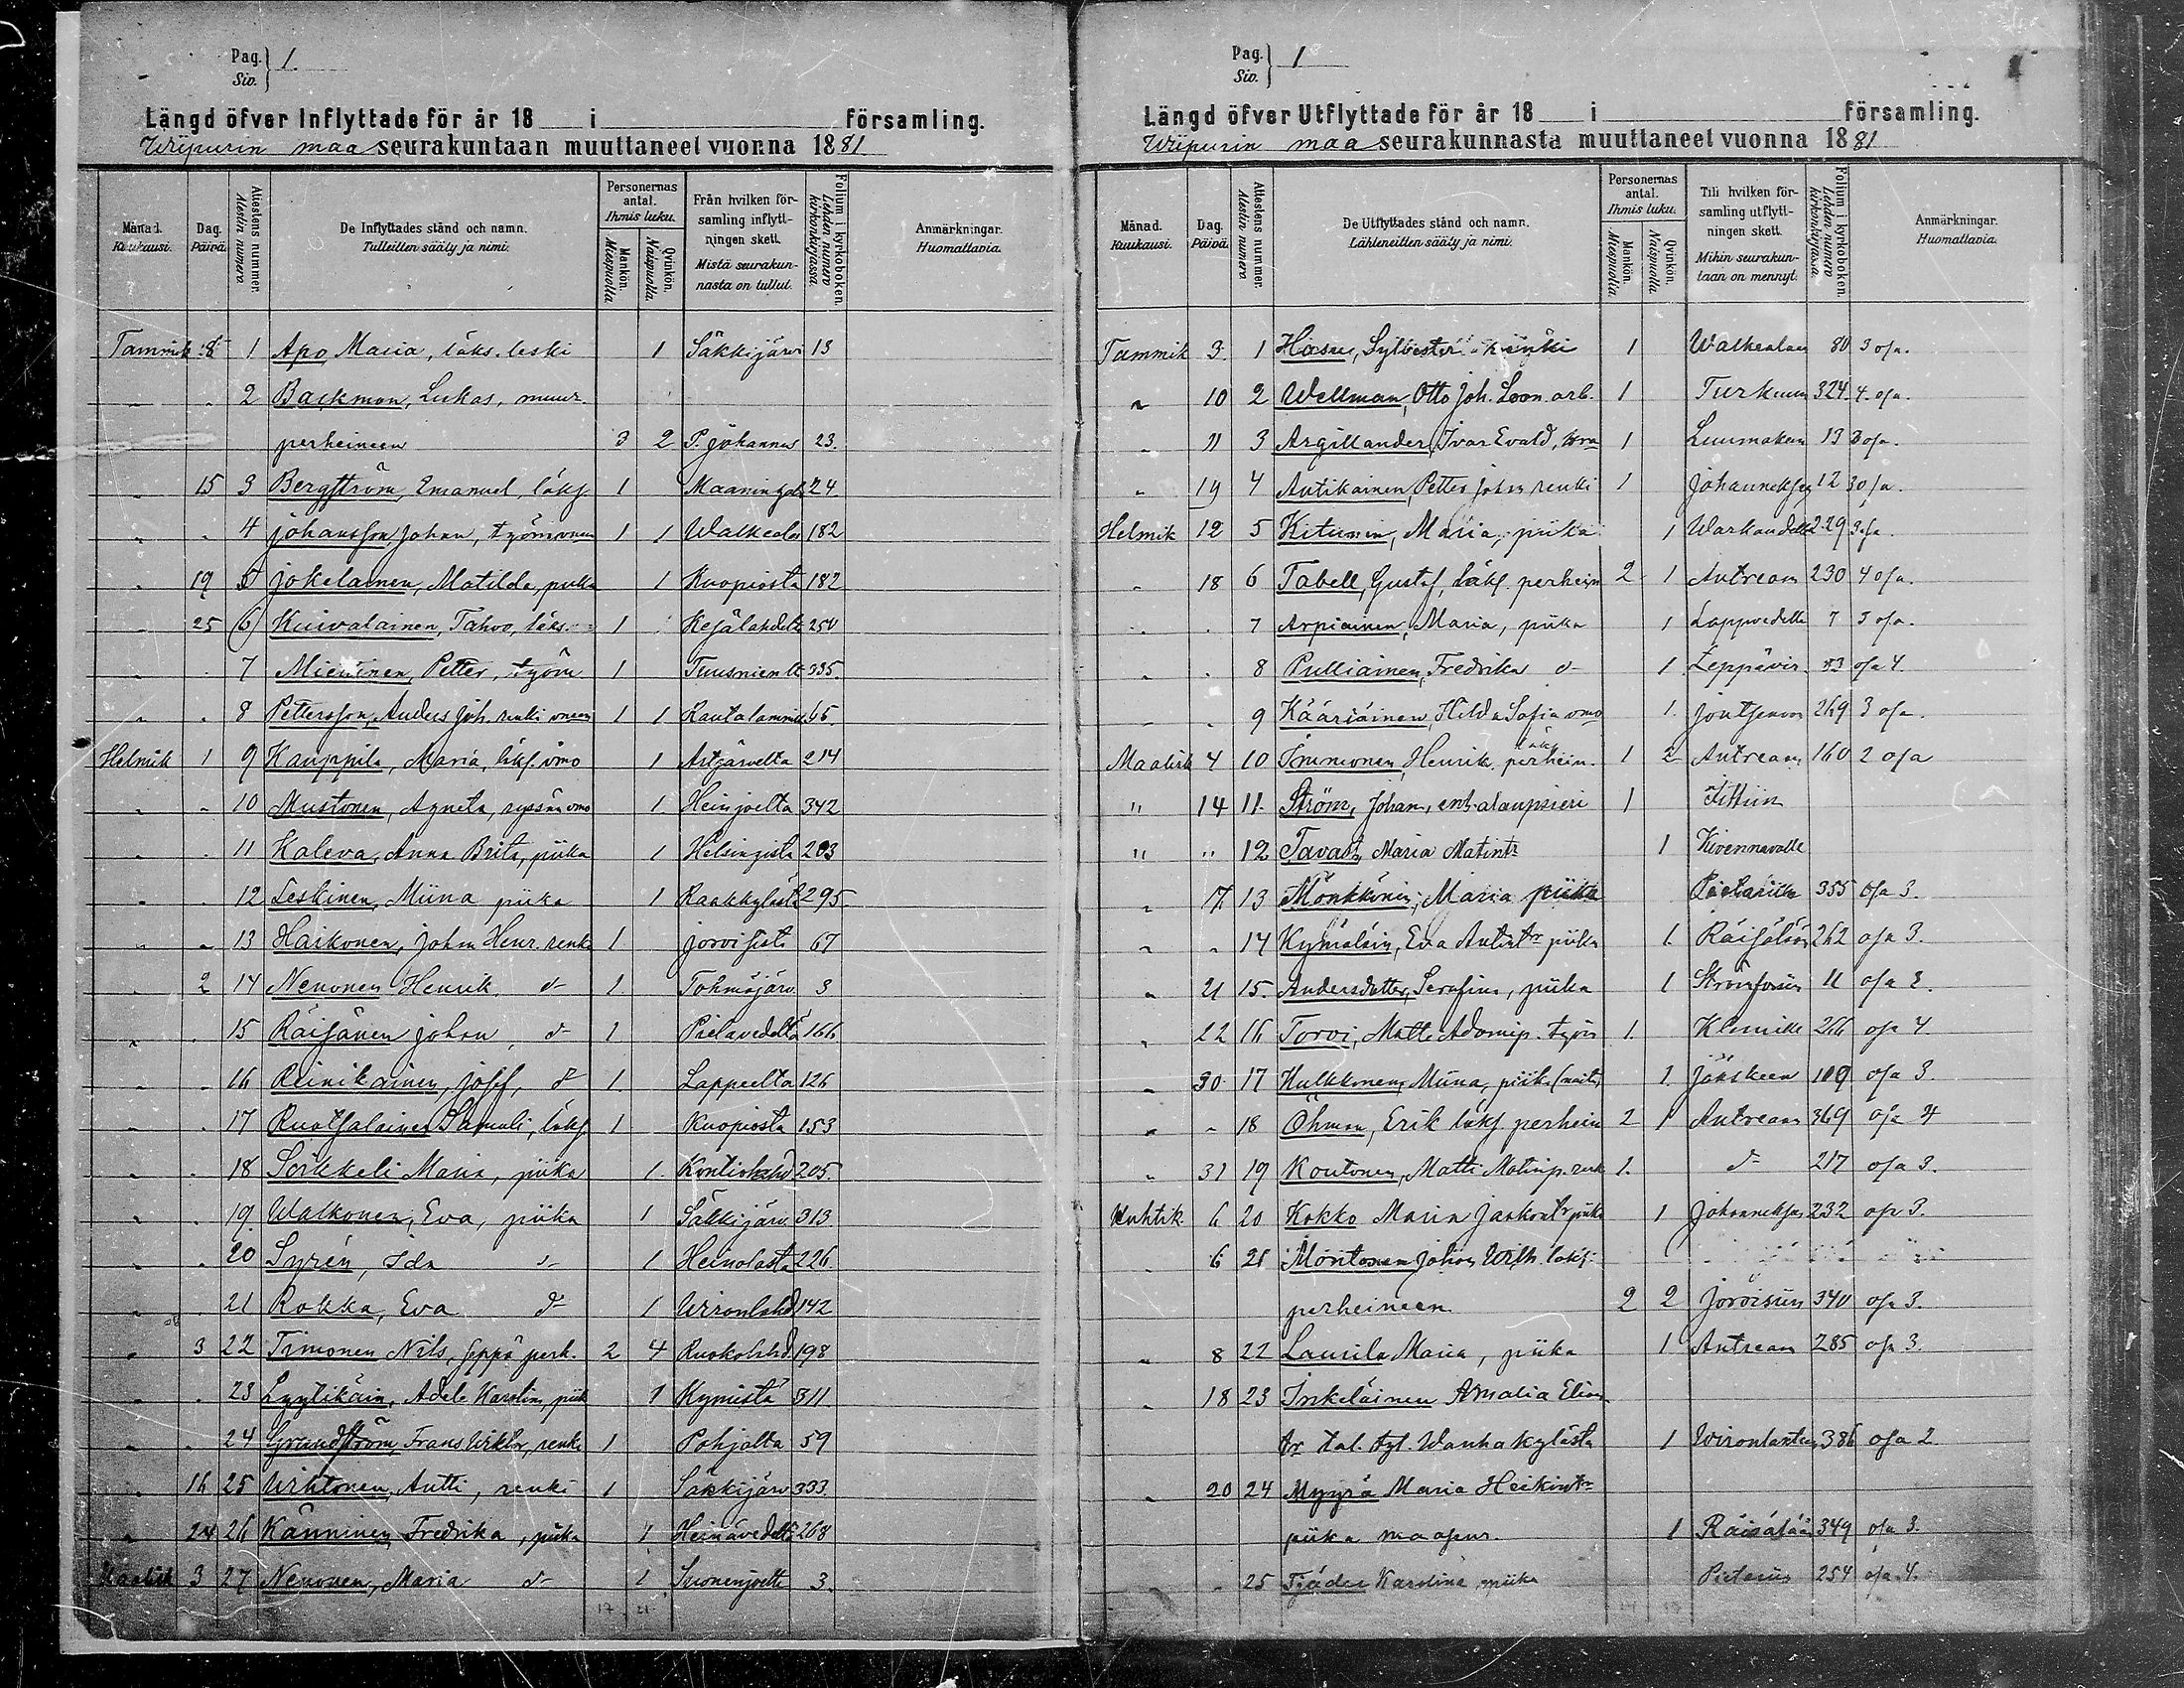 Pag. 1.
Siv.
Längd öfver Inflyttade för år 18 i församling.
Wiipurin maa seurakuntaan muuttaneet vuonna 1881
Månad. Kuukausi.
Dag. Päivä.
Attestens nummer. Atestin numero
De Inflyttades stånd och namn. Tulleitten sääty ja nimi.
Personernas antal. Ihmis luku.
Mankön. Miespuolia
Qvinkön. Naispuolia
Från hvilken församling inflyttningen skett. Mistä seurakunnasta on tullut.
Folium i kyrkoboken. Lehden numero kirkonkirjassa.
Anmärkningar. Huomattavia.
Tammik 8 1 Apo Maria, läks. leski 1 Säkkijärv 13
" " 2 Backman, Lukas, muur.
perheineen 3 2 P. Johannes 23.
" 15 3 Bergström, Emanuel, läks 1 Maaningalt 24
" " 4 Johansson Johan, työm 1 1 Walkeala 182
" 19 5 Jokelainen, Matilda, piika 1 Kuopiosta 182
" 25 6 Kuivalainen, Tahvo, läks. 1 250
" " 7 Miettinen, Petter, työm 1 Tuusniemelt 335.
" " 8 Pettersson, Anders Joh. renki 1 1 Rautalammilt
Helmik 1 9 Kauppila, Maria, läks. vmo 1 Artjärveltä 214
" " 10 Mustonen, Agneta, vmo 1. Heinjoelta 342
" " 11 Kaleva, Anna Brita, piika 1 Helsingistä 203
" " 12 Leskinen, Miina piika 1 Raakkyläst 295
" " 13 Haikonen, Johan Henr. renki 1 Joroisista 67
" 2 14 Nenonen Henrik. d 1 Tohmajärv. 3
" " 15 Räisänen Johan, d 1 Pielavedeltä 166
" " 16 Reinikainen, Josef, d 1. Lappeelta 126
" " 17 Ruotsalainen Samuli, läks 1 Kuopiosta 153
" " 18 Sorkkeli Maria, piika 1. Kontiolahd 205.
" " 19. Walkonen, Eva, piika 1 Säkkijärv 313
" " 20 Syrén, Ida d 1 Heinolasta 226
" " 21 Rokka, Eva d 1 Wironlahd 142
" 3 22 Timonen Nils, seppä perh. 2 4 Ruokolahd. 198
" " 23 Lyytikäin, Adele Karolin, piik 1 Kymistä 311
" " 24 Grundström, Frans Wiktor, renki 1 Pohjalta 59
" 16 25 Wihtonen, Antti, renki 1 Säkkijärv 333
" 24 26 Känninen Fredrika, piika 1 Heinävedeltä 268
Maalisk 3 27 Nenonen, Maria d 1 Suonenjoelta 3.
17 21
Pag. 1
Siv.
Längd öfver Utflyttade för år 18 i församling.
Wiipurin maa seurakunnasta muuttaneet vuonna 1881
Månad. Kuukausi.
Dag. Päivä.
Attestens nummer. Atestin numero
De Utflyttades stånd och namn. Lähteneitten sääty ja nimi.
Personernas antal. Ihmis luku.
Mankön. Miespuolia
Qvinkön. Naispuolia
Till hvilken församling utflyttningen skett. Mihin seurakuntaan on mennyt.
Folium i kyrkoboken. Lehden numero kirkonkirjassa.
Anmärkningar. Huomattavia.
Tammik 3. 1 Sylvester renki 1 Walkealaan 80 3 osa.
" 10 2 Wellman, Otto Joh. arb. 1 Turkuun 324 4. osa.
" 11 3 Argillander, Ivar Evald, 1 Luumäkeen 13 3 osa.
" 19 4 Antikainen, Petter Johan renki 1 Johanneksen 12 3 osa.
Helmik 12 5 Maria, piika 1 229 3 osa.
" 18 6 Tabell, Gustaf, läks. perhein 2 1 Antrean 230 4 osa.
" " 7 Arpiainen, Maria, piika 1 Lappvedelle 7 3 osa.
" " 8 Pulliainen, Fredrika d 1 Leppävir. osa 4.
" " 9 Kääriäinen, Hilda Sofia vmo 1. Joutsenon 269 3 osa.
Maalisk 4 10 Immonen, Henrik läks perhein. 1 2 Antrean 160 2 osa
" 14 11. Ström, Johan, ent. 1
" " 12 Tavast, Maria Matintr 1 Kivennavalle
" 17. 13 Mönkkönen, Maria piika Pietariin 355 osa 3.
" " 14 Kymäläin, Eva Antintr piika 1. Räisälään 262 osa 3.
" 21 15. Andersdotter, Serafina, piika 1 Strömforsiin 11 osa 2.
" 22 16 Torvi, Matti Adamip. työm 1. 266 osa 4
" 30 17 Hulkkonen, Miina, piika 1. Jääskeen 109 osa 3.
" " 18 Öhman, Erik läks perhein 2 1 Antrean 369 osa 4
" 31 19 Koutonen, Matti Matinp. renk 1. d 217 osa 3.
Huhtik. 6 20 Kokko Maria Jaakontr piika 1 Johanneksen 232 osa 3.
" 6 21 Johan Wilh. läks.
perheineen. 2 2 Joroisiin 340 osa 3.
" 8 22 Laurila Maria, piika 1 Antrean 285 osa 3.
" 18 23 Inkeläinen Amalia Elian
tr tal. tyt. Wanhakylästä 1 Wironlahteen 386 osa 2.
" 20 24 Myyrä Maria Heikintr
piika 1 Räisälään 349 osa 3.
" 25 Tjäder Karolina piika Pietariin 254 osa 4.